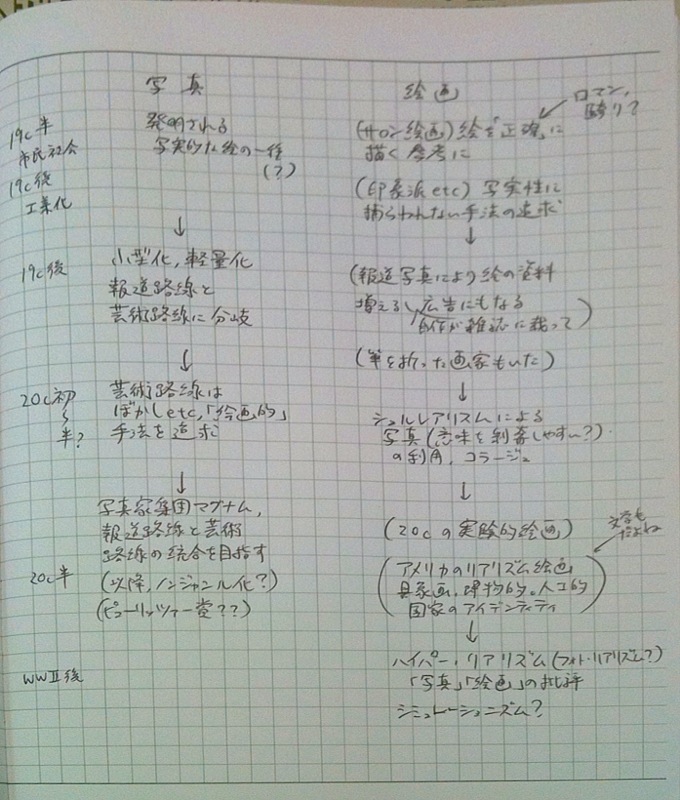 写真
発明される
写実的な絵の一種
(?)
↓
小型化,軽量化
報道路線と
芸術路線に分岐
↓
芸術路線は
ぼかしetc,「絵画的」
手法を追求
↓
写真家集団マグナム,
報道路線と芸術
路線の統合を目指す
(以降,ノンジャンル化?)
(ピューリッツァー賞??)
19c半
市民社会
19c後
工業化
19c後
20c初
〜
半?
20c半
WWⅡ後
絵画
ロマン,
(サロン絵画)絵を「正確」に
描く参考に
(印象派etc) 写実性に
捕らわれない手法の追求
↓
(報道写真により絵の資料
増えるし広告にもなる
自信が雑誌に載って)
(筆を折った画家もいた)
↓
シュルレアリスムによる
写真(意味を剥奪しやすい?)
の利用,コラージュ
↓
(20cの実験的絵画)
文学も
だよね
(アメリカのリアリズム絵画
具象画,理物的,人工的
国家のアイデンティティ)
↓
ハイパー・リアリズム(フォト・リアリズム?)
「写真」「絵画」の批評
シミュレーショニズム?